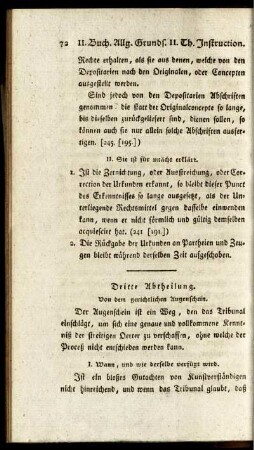 72 II. Buch. Allg. Grunds. II. Th. Instruction.
Rechte erhalten, als sie aus denen, welche von den
Depositarien nach den Originalen, oder Concepten
ausgestellt werden.
Sind jedoch von den Depositarien Abschriften
genommen die statt der Originalconcepte so lange,
bis dieselben zurückgeliefert sind, dienen sollen, so
können auch sie nur allein solche Abschriften ausfer-
tigen. [245. [195.])
II. Sie ist für unächt erklärt.
1. Ist die Zernichtung, oder Ausstreichung, oder Cor-
rection der Urkunden erkannt, so bleibt dieser Punct
des Erkenntnisses so lange ausgesetzt, als der Un-
terliegende Rechtsmittel gegen dasselbe einwenden
kann, wenn er nicht förmlich und gültig demselben
acquiescirt hat. (241 [191.])
2. Die Rückgabe der Urkunden an Partheien und Zeu-
gen bleibt während derselben Zeit aufgeschoben.
Dritte Abtheilung.
Von dem gerichtlichen Augenschein.
Der Augenschein ist ein Weg, den das Tribunal
einschlägt, um sich eine genaue und vollkommene Kennt-
niß der streitigen Oerter zu verschaffen, ohne welche der
Proceß nicht entschieden werden kann.
I. Wann, und wie derselbe verfügt wird.
Ist ein bloßes Gutachten von Kunstverständigen
nicht hinreichend, und wenn das Tribunal glaubt, daß